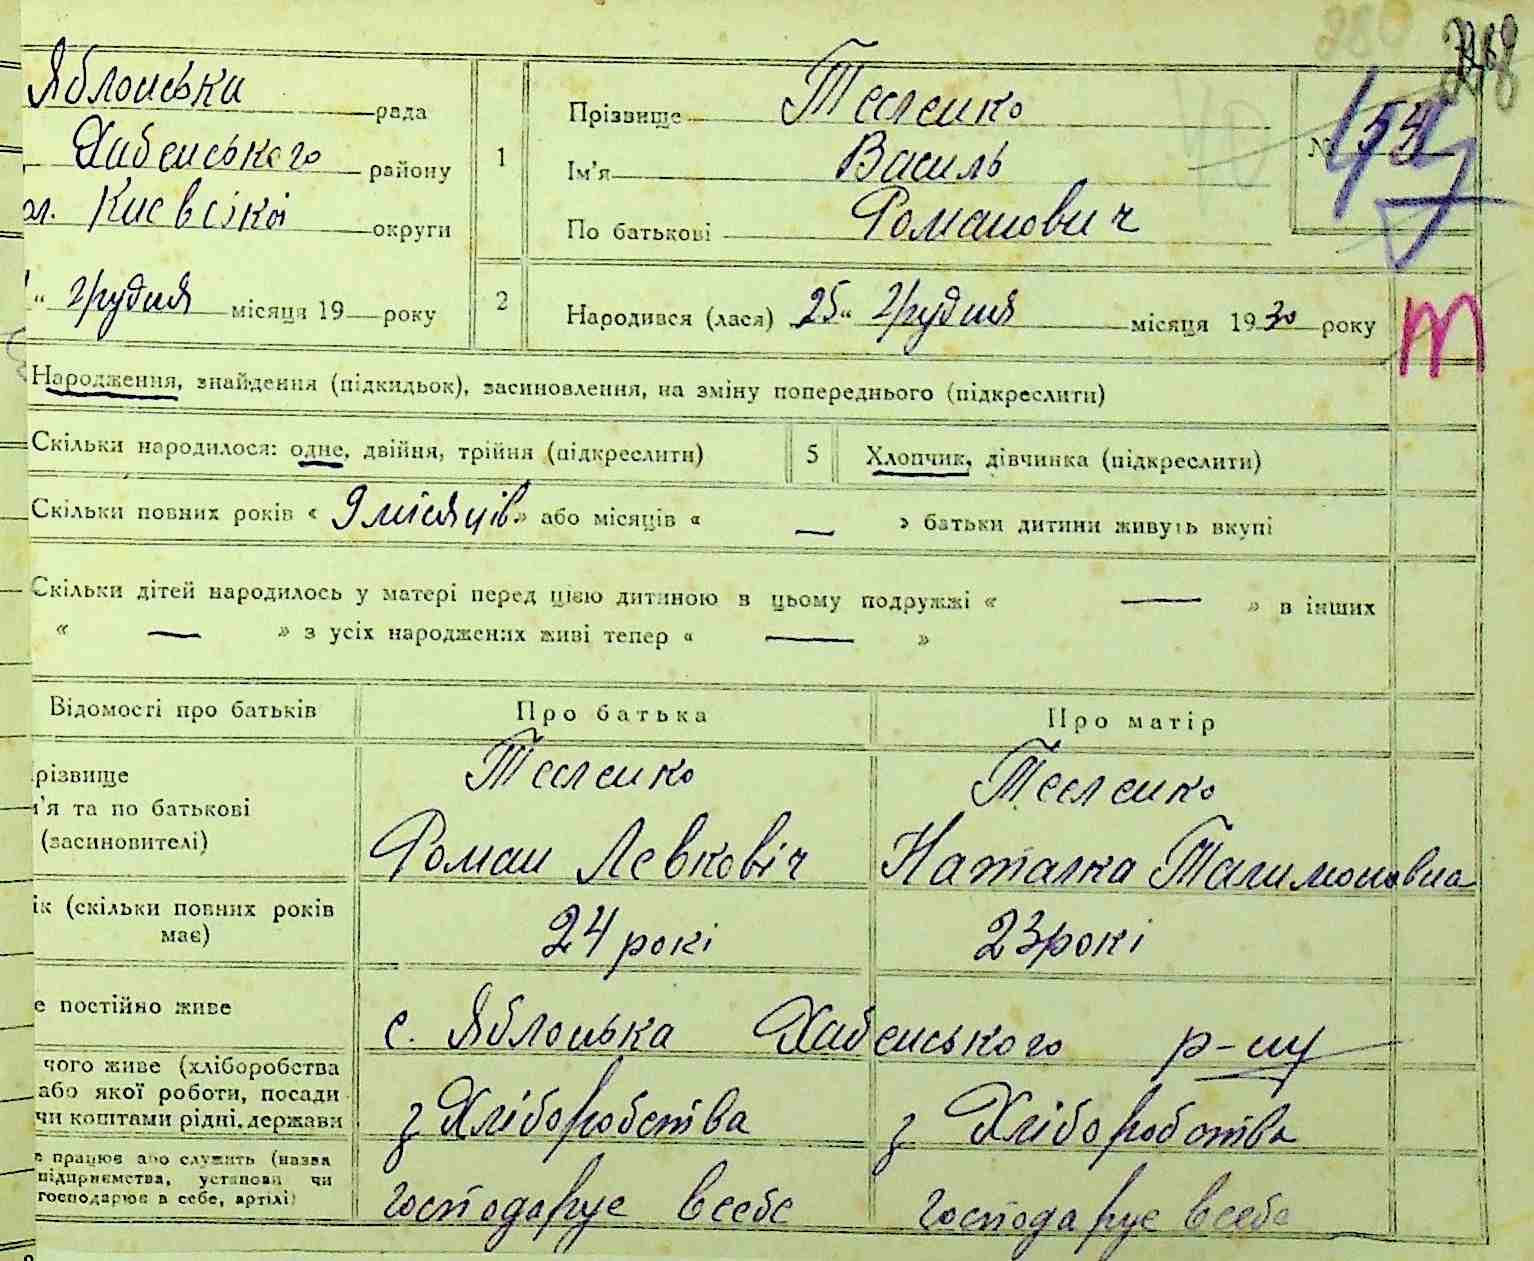 Яблонська рада
Хабенського району
ол. Києвської округи
“ грудня місяця 19 року
1
Прізвище Тесленко
Ім'я Василь
По батькові Романович
№ 154
2
Народився (лася) 25 “ грудня місяця 1930 року
Народження, знайдення (підкидьок), засиновлення, на зміну попереднього (підкреслити)
Скільки народилося: одне, двійня, трійня (підкреслити)
5
Хлопчик, дівчинка (підкреслити)
Скільки повних років « 9 місяців » або місяців « — » батьки дитини живуть вкупі
Скільки дітей народилось у матері перед цією дитиною в цьому подружжі « — » в інших
« — » з усіх народжених живі тепер « — »
Відомості про батьків
Про батька
Про матір
різвище
'я та по батькові
(засиновителі)
Тесленко
Роман Левковіч
Тесленко
Наталка Талимоновна
ік (скільки повних років
має)
24 рокі
23 рокі
е постійно живе
с. Яблонька Хабенського р-ну
чого живе (хліборобства
або якої роботи, посади
чи коштами рідні, держави
з Хліборобства
з Хліборобства
е працює або служить (назва
підприємства, установи чи
господарює в себе, артілі)
господарує в себе
господарує в себе